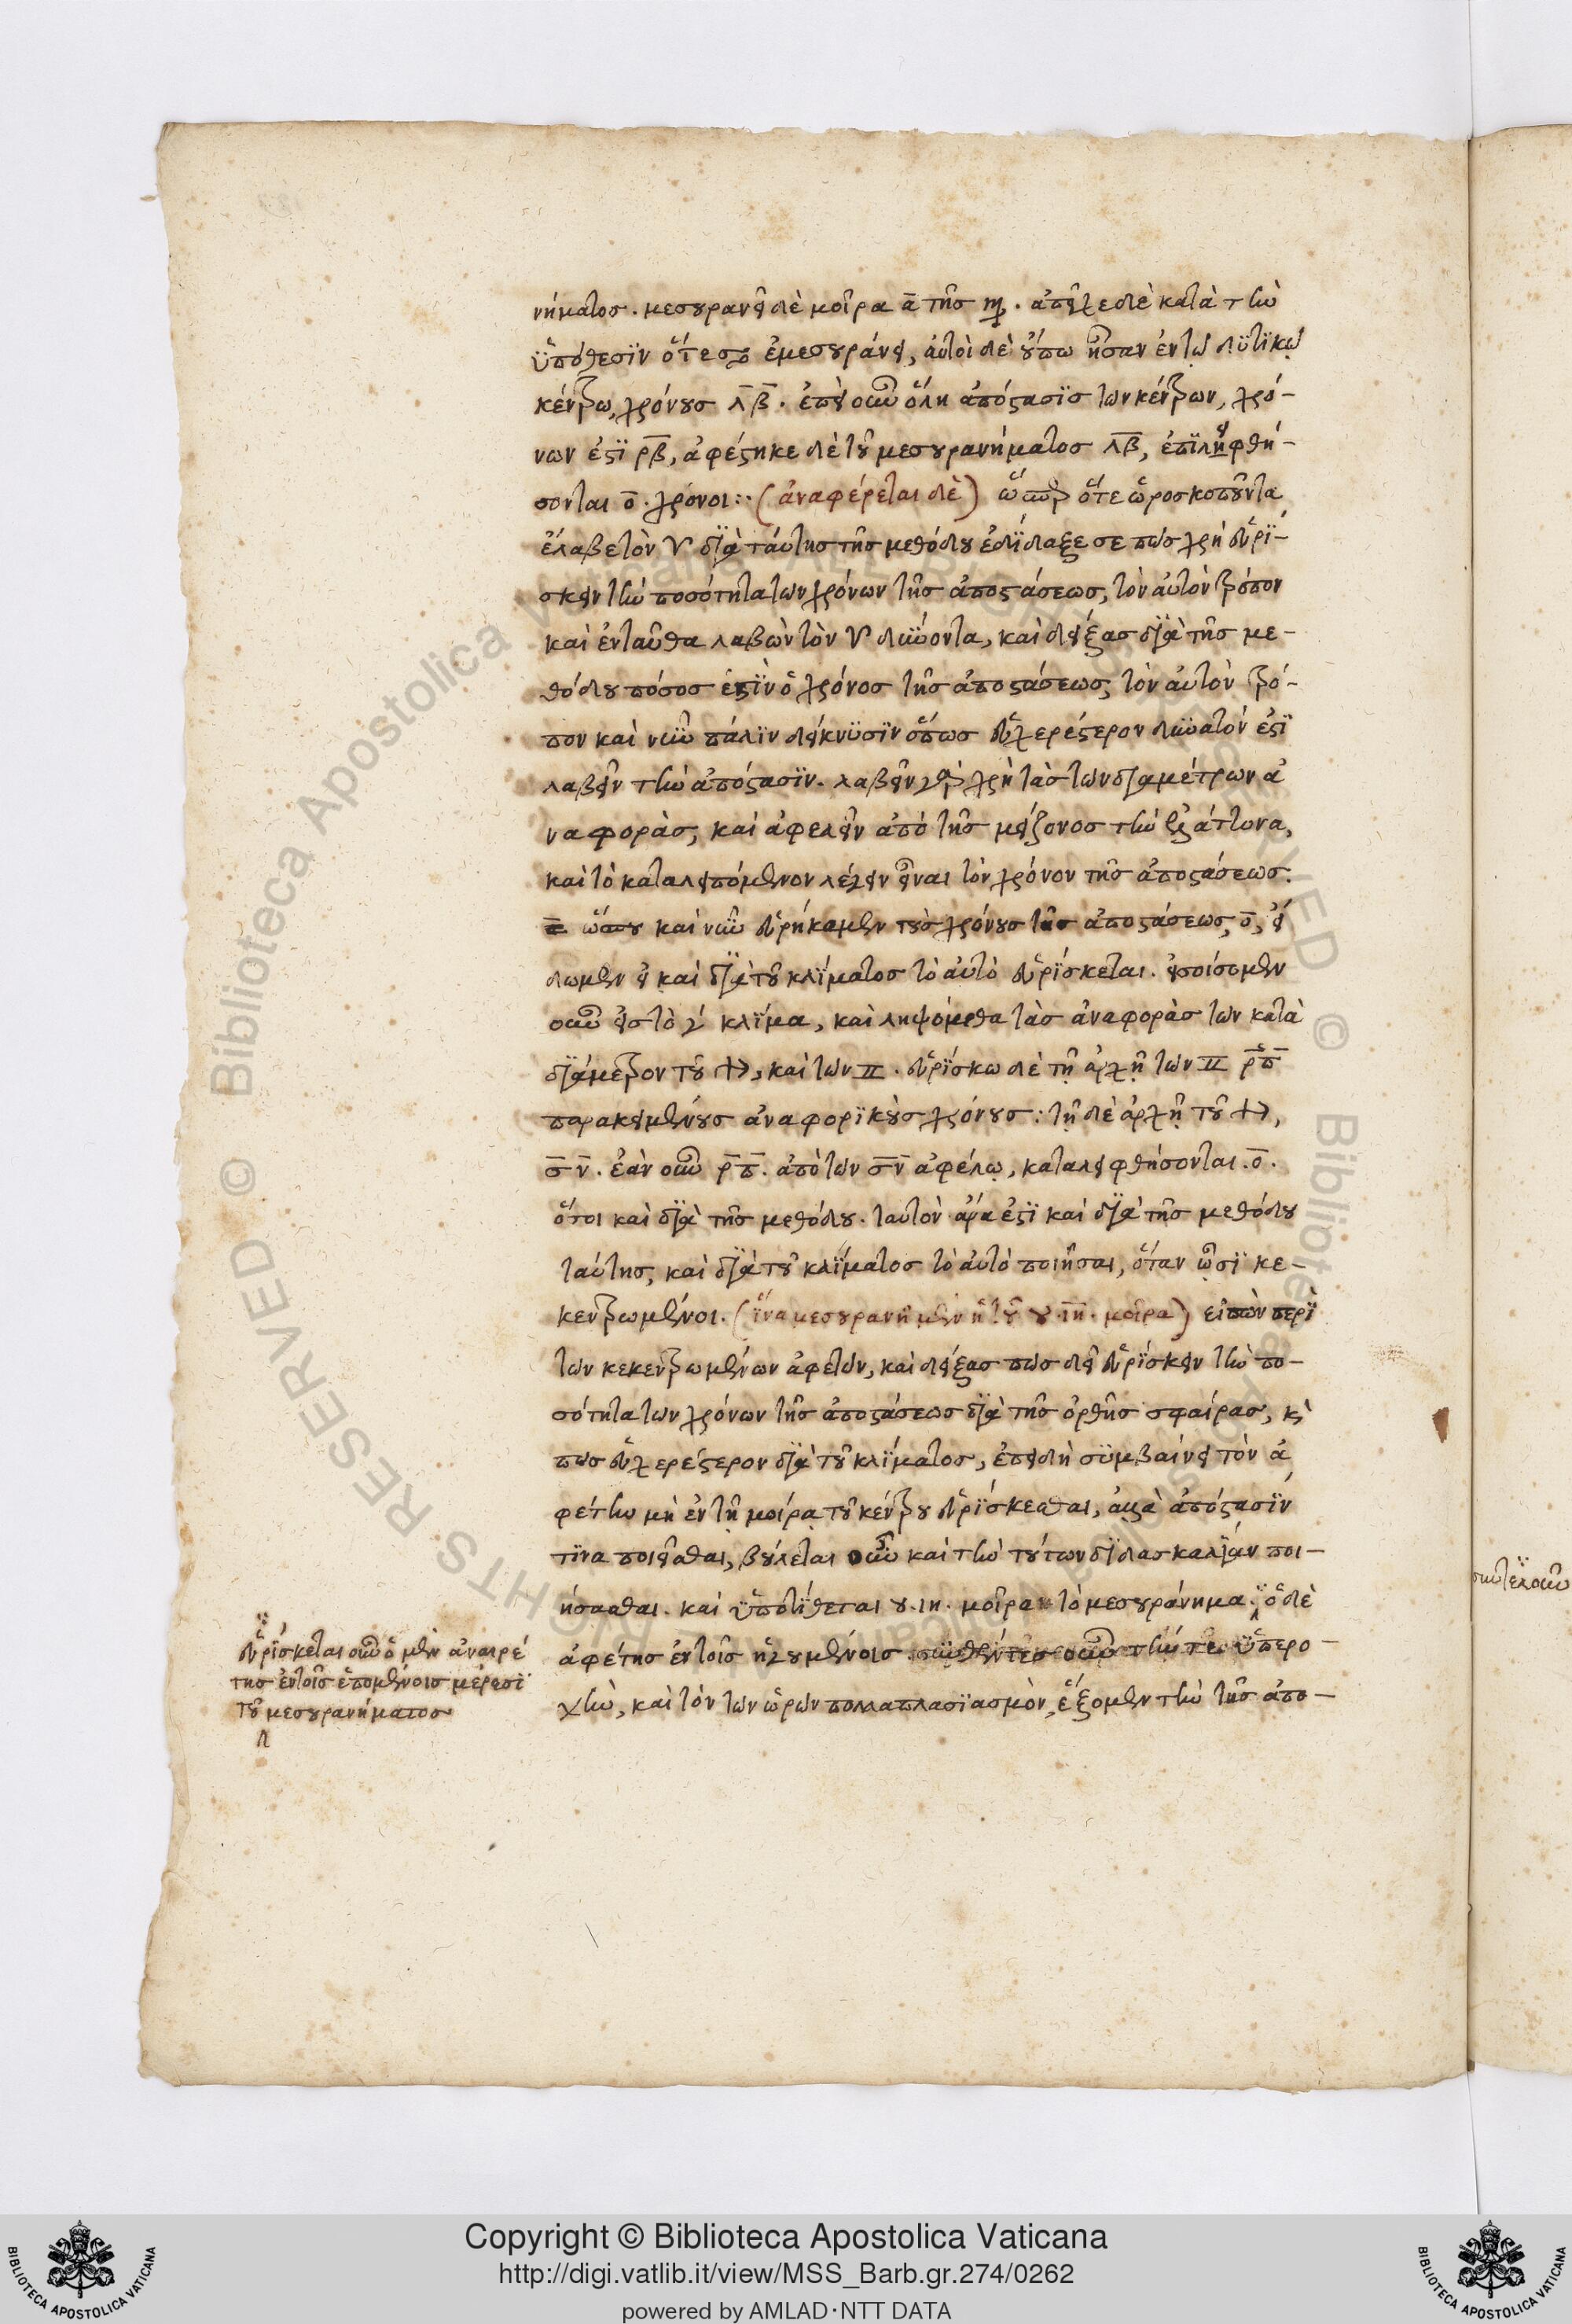 νήματος. μεσουρανεῖ δὲ μοῖρα ᾱ τῆς ♍. ἀπεῖχε δὲ κατὰ τὴν
ὑπόθεσϊν ὅτε ἐμεσουράνει, αὐτοὶ δὲ οὔπω ἦσαν ἐν τῷ δϋτϊκῷ
κέντρῳ, χρόνους λ̄β̄. ἐπεὶ οὖν ὅλη ἀπόστασϊς τῶν κέντρων, χρό-
νων ἐστϊ ρ̄β̄, ἀφέστηκε δὲ τοῦ μεσουρανήματος λ̄β̄, ἐπϊλειφθή-
σονται ō. χρόνοι:· (ἀναφέρεται δὲ) ὥσπερ ὅτε ὡροσκοποῦντα
ἔλαβε τὸν ♈ δϊὰ ταύτης τῆς μεθόδου ἐδΐδαξε σε πῶς χρὴ εὑρΐ-
σκειν τὴν ποσότητα τῶν χρόνων τῆς ἀποστάσεως, τὸν αὐτὸν τρόπον
καὶ ἐνταῦθα λαβὼν τὸν ♈ δύνοντα, καὶ δείξας δϊὰ τῆς με-
θόδου πόσος ἐστῒν ὁ χρόνος τῆς ἀποστάσεως, τὸν αὐτὸν τρό-
πον καὶ νῦν πάλϊν δείκνϋσϊν ὅπως εὐχερέστερον δυνατόν ἐστϊ
λαβεῖν τὴν ἀπόστασϊν. λαβεῖν γὰρ χρὴ τὰς τῶν δϊαμέτρων ἀ
ναφοράς, καὶ ἀφελεῖν ἀπὸ τῆς μείζονος τὴν ἐλάττονα,
καὶ τὸ καταλειπόμενον λέγειν εἶναι τὸν χρόνον τῆς ἀποστάσεως.
ὥσπου καὶ νῦν εὑρήκαμεν τοὺς χρόνους τῆς ἀποστάσεως, ō, εἴ
δωμεν εἰ καὶ δϊὰ τοῦ κλΐματος τὸ αὐτὸ εὑρΐσκεται. εἰσοίσομεν
οὖν εἰς τὸ γ´ κλΐμα, καὶ ληψόμεθα τὰς ἀναφορὰς τῶν κατὰ
δϊάμετρον τοῦ ♐, καὶ τῶν ♊. εὑρΐσκω δὲ τῇ ἀρχῇ τῶν ♊ ρ̄π̄
παρακειμένους ἀναφορϊκοὺς χρόνους: τῇ δὲ ἀρχῇ τοῦ ♐,
σ̄ν̄. ἐὰν οὖν ρ̄π̄. ἀπὸ τῶν σ̄ν̄ ἀφέλω, καταλειφθήσονται. ō.
ὅσοι καὶ δϊὰ τῆς μεθόδου. ταυτὸν ἄρα ἐστϊ καὶ δϊὰ τῆς μεθόδου
ταύτης, καὶ δϊὰ τοῦ κλΐματος τὸ αὐτὸ ποιῆσαι, ὅταν ὦσϊ κε-
κεντρωμένοι. (ἵνα μεσουρανῇ μὲν ἡ τοῦ ♉ ιη. μοῖρα) εἰπὼν περῒ
τῶν κεκεντρωμένων ἀφετῶν, καὶ δείξας πῶς δεῖ εὑρΐσκειν τὴν πο-
σότητα τῶν χρόνων τῆς ἀποστάσεως δϊὰ τῆς ὀρθῆς σφαίρας, κὶ
πῶς εὐχερέστερον δϊὰ τοῦ κλΐματος, ἐπειδὴ σϋμβαίνει τὸν ἀ
φέτην μὴ ἐν τῇ μοίρᾳ τοῦ κέντρου εὑρΐσκεσθαι, ἀλλὰ ἀπόστασϊν
τϊνα ποιεῖσθαι, βούλεται οὖν καὶ τὴν τούτων δϊδασκαλΐαν ποι-
ήσασθαι. καὶ ὑποτΐθεται ♉ .ιη. μοῖραν τὸ μεσουράνημα. ὁ δὲ
ἀφέτης ἐν τοῖς ἡγουμένοις ὑπερο-
χὴν, καὶ τὸν τῶν ὡρῶν πολλαπλασϊασμὸν, ἕξομεν τὴν τῆς ἀπο-
εὑρΐσκεται οὖν ὁ μὲν ἀναιρέ
της ἐν τοῖς ἑπομένοις μέρεσϊ
τοῦ μεσουρανήματος
Copyright © Biblioteca Apostolica Vaticana
http://digi.vatlib.it/view/MSS_Barb.gr.274/0262
powered by AMLAD·NTT DATA